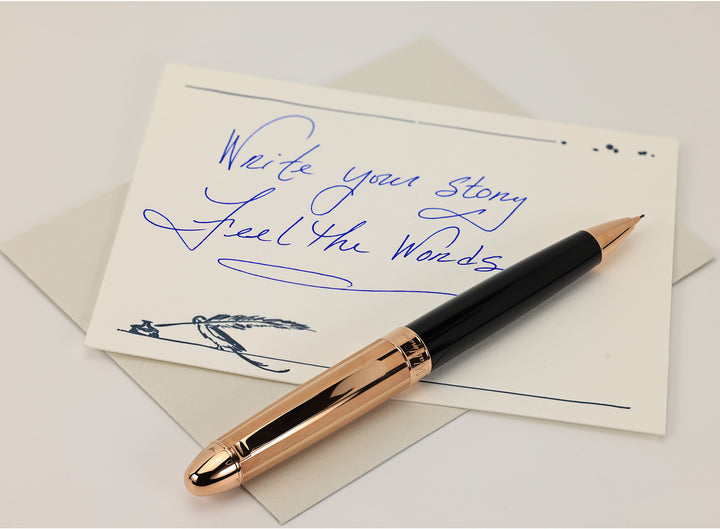 Write your story
Feel the Words